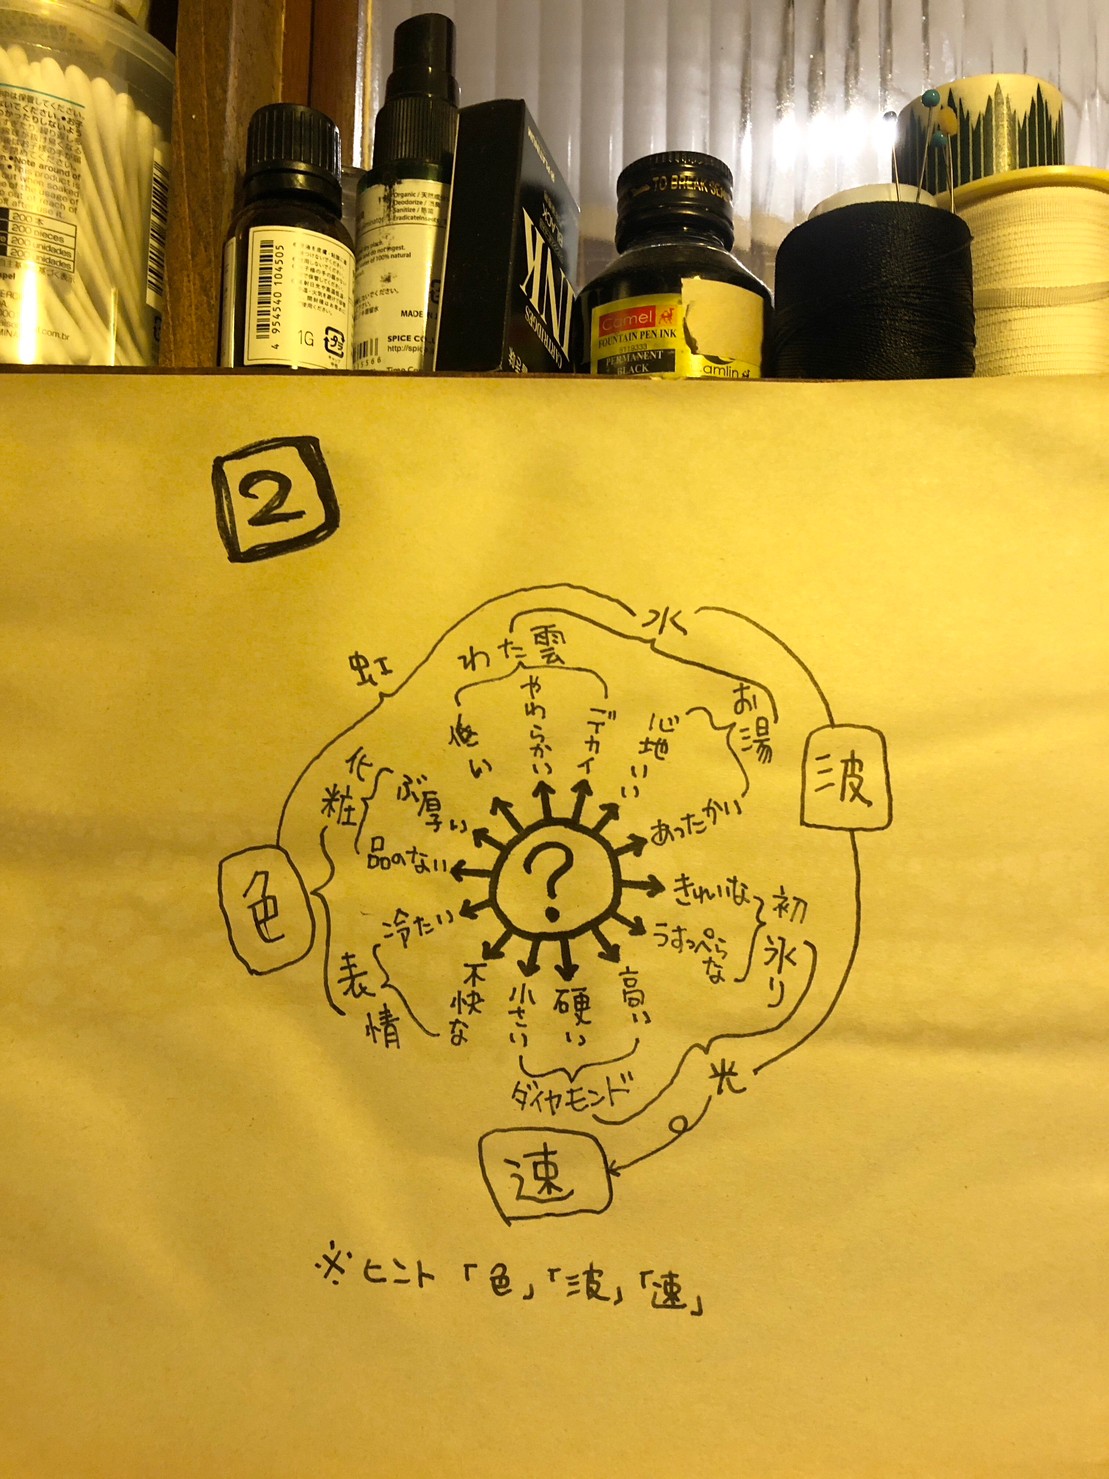 200 本
200 pieces
200 unidades
200 unidades
4 954540 104505
1G
Organic / 天然
Deodorize / 消臭
Sanitize / 除菌
of 100% natural
MADE
SPICE CO.
http://spic
INK
TO BREAK SEAL
Camel
FOUNTAIN PEN INK
PERMANENT
BLACK
amlin
2
水
わた雲
虹
お湯
やわらかい
デカイ
心地いい
低い
波
化粧
ぶ厚い
あったかい
品のない
きれいな
初氷り
色
?
冷たい
うすっぺらな
表情
不快な
小さい
硬い
高い
光
ダイヤモンド
速
※ヒント「色」「波」「速」